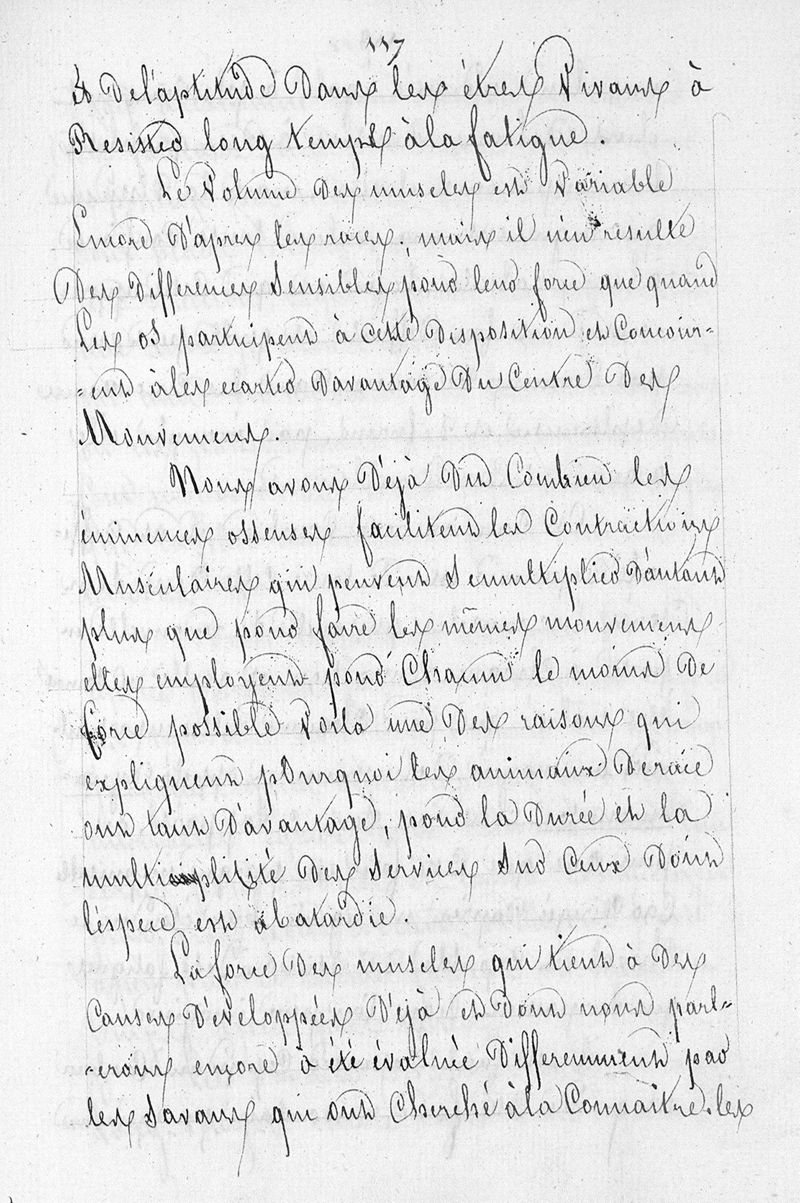 117
et De l'aptitude Dans les êtres Vivans à
Resister long temps à la fatigue.
Le Volume Des muscles est Variable
Encore D'apres les races; mais il n'en resulte
Des Differences Sensibles pour leur force que quand
Les os participent à cette Disposition et Concour-
-ent à les ecarter Davantage Du Centre Des
Mouvemens.
Nous avons Déjà Dit Combien les
éminences osseuses facilitent les Contractions
Musculaires qui peuvent Se multiplier D'autant
plus que pour faire les mêmes mouvemens
elles employent pour Chacun le moins De
force possible Voila une Des raisons qui
expliquent pourquoi les animaux De race
ont tant D'avantage, pour la Durée et la
multiplicite Des Services Sur Ceux Dont
l'espece est abatardie
La force Des muscles qui tient à Des
Causes Développées Déjà et Dont nous parl-
-erons encore à été évaluée Differemment par
les Savans qui ont Cherché à la Connaitre. les